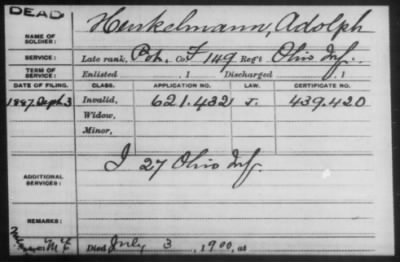 DEAD
NAME OF SOLDIER: Henkelmann, Adolph
SERVICE: Late rank, Co. F 149 Reg't Ohio Inf.
TERM OF SERVICE: Enlisted , 1 Discharged , 1
DATE OF FILING. CLASS. APPLICATION NO. LAW. CERTIFICATE NO.
1897 Sept. 3 Invalid, 621.432 J. 439.420
Widow,
Minor,
ADDITIONAL SERVICES: I 27 Ohio Inf.
REMARKS:
Died July 3, 1900, at